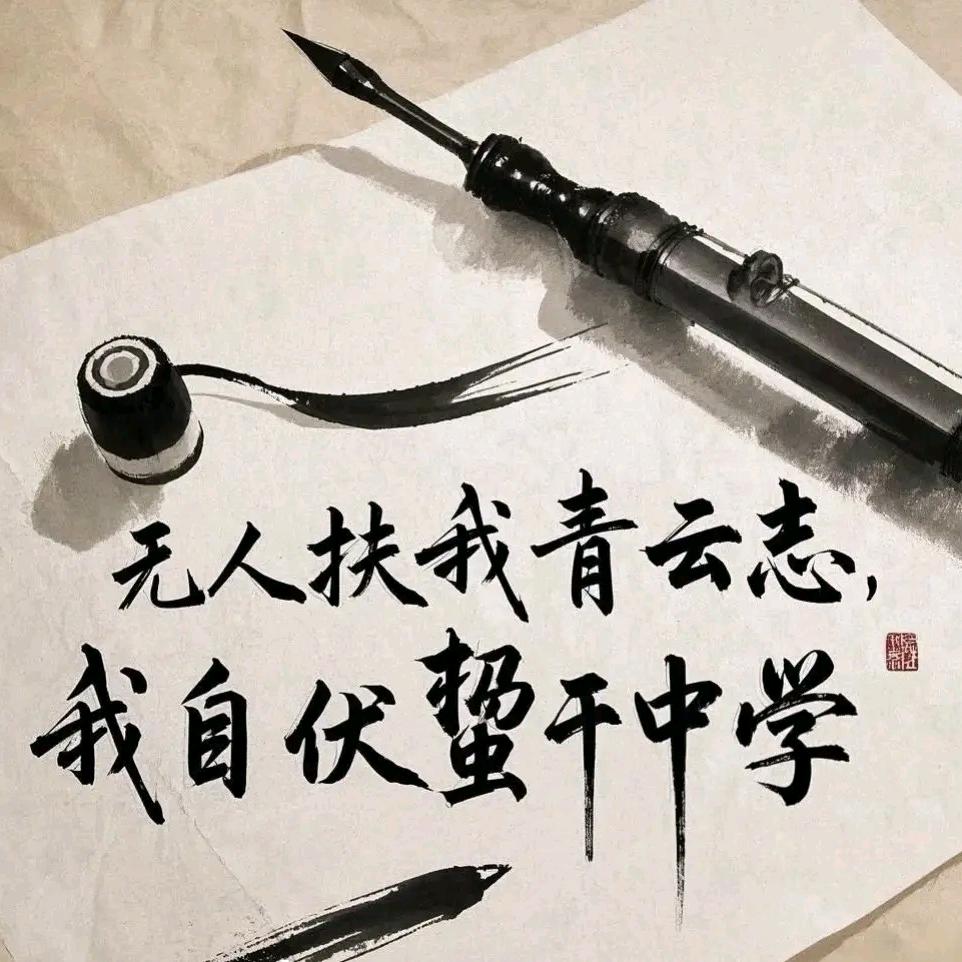 无人扶我青云志,
我自伏蜇干中学